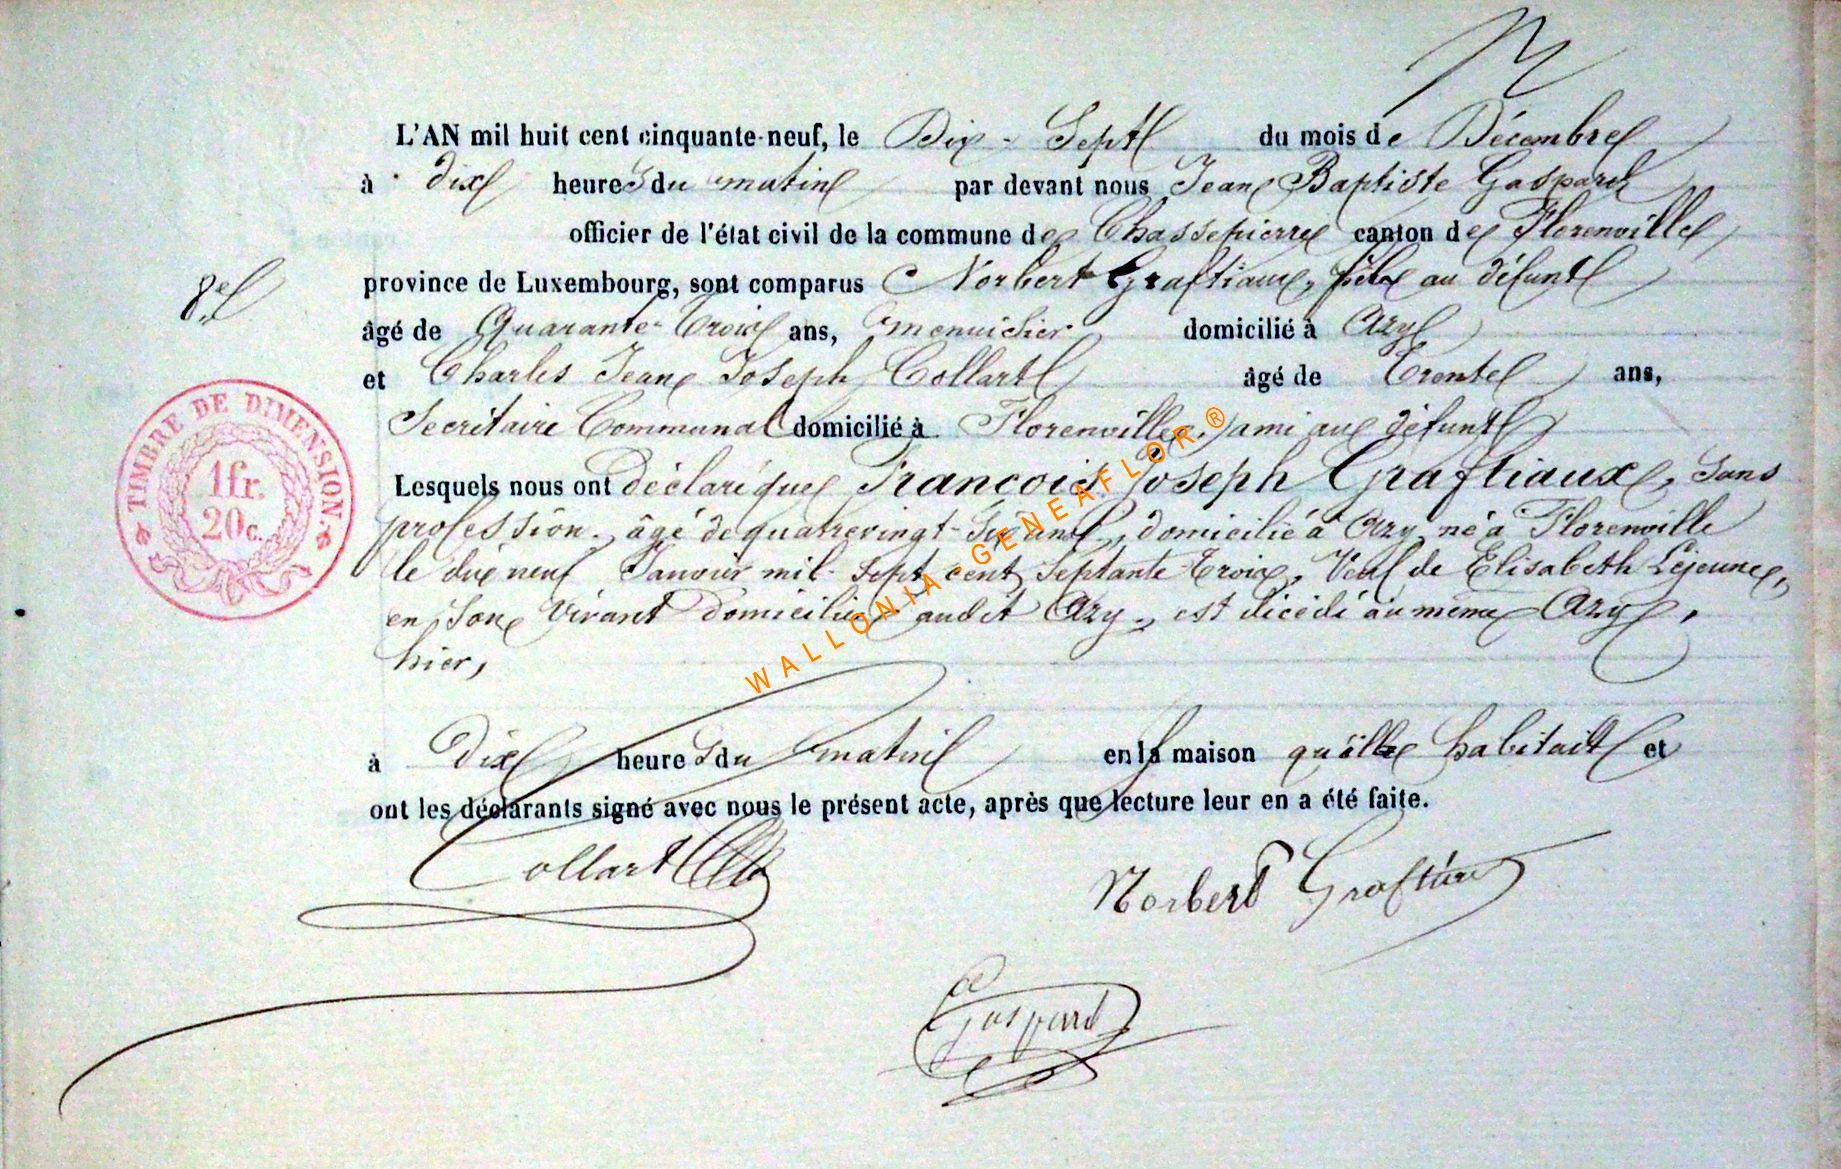 L'AN mil huit cent cinquante-neuf, le Dix-Sept du mois de Décembre
à dix heures du matin par devant nous Jean Baptiste Gaspard
officier de l'état civil de la commune de Chassepierre canton de Florenville
province de Luxembourg, sont comparus Norbert Graftiaux, fils au défunt
âgé de Quarante-Trois ans, menuisier domicilié à Azy
et Charles Jean Joseph Collart âgé de Trente ans,
Secrétaire Communal domicilié à Florenville, ami au défunt
Lesquels nous ont déclaré que François Joseph Graftiaux, Sans
profession, âgé de quatrevingt-six ans, domicilié à Azy, né à Florenville
le dix neuf Janvier mil sept cent septante-trois, Veuf de Elisabeth Lejeune,
en son vivant domicilié audit Azy, est décédé au même Azy,
hier,
à dix heures du matin en la maison qu'il habitait et
ont les déclarants signé avec nous le présent acte, après que lecture leur en a été faite.
Collart
Norbert Graftiaux
Gaspard
8e
TIMBRE DE DIMENSION.
1fr.
20c.
WALLONIA-GENEAFLOR®